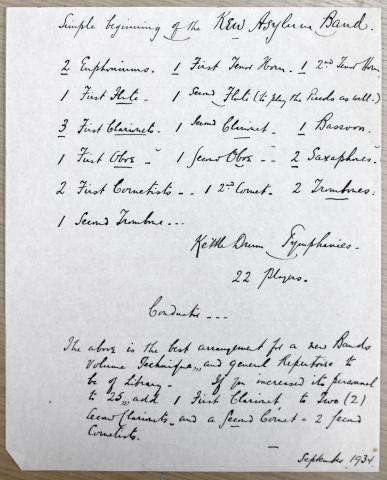 Simple beginning of the Kew Asylum Band.
2 Euphoniums. 1 First Tenor Horn. 1 2nd Tenor Horn
1 First Flute - 1 Second Flute (to play the Piccolo as well -)
3 First Clarinets. 1 Second Clarinet - 1 Bassoon.
1 First Oboe - 1 Second Oboe - - 2 Saxaphones -
2 First Cornetists - - 1 2nd Cornet. - 2 Trombones:
1 Second Trombone - - -
Kettle Drum Tymphanies -
22 Players.
Conductor - - -
The above is the best arrangement for a new Bands
Volume Technique,,, and general Repertoire to
be of Library - If you increased its personnel
to 25,,, add 1 First Clarinet to Two (2)
Second Clarinets - and a Second Cornet = 2 Second
Cornetists.
September 1934.